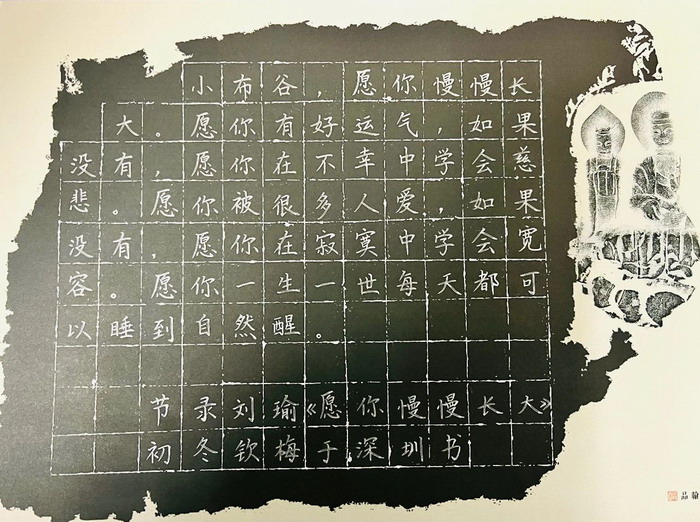 小布谷，愿你慢慢长
大。愿你有好运气，如果
没有，愿你在不幸中学会慈
悲。愿你被很多人爱，如果
没有，愿你在寂寞中学会宽
容。愿你一生一世每天都可
以睡到自然醒。
节录刘瑜《愿你慢慢长大》
初冬钦梅于深圳书